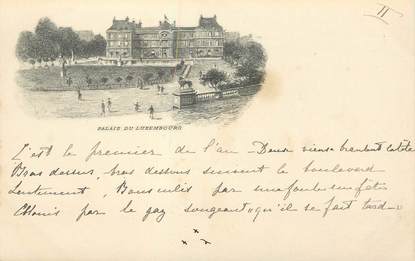 II
PALAIS DU LUXEMBOURG
C'est le premier de l'an - Deux vieux branlant la tête
Bras dessus, bras dessous suivent le boulevard
Lentement, Bousculés par une foule en fête
Eblouis par le gaz songeant "qu'il se fait tard"